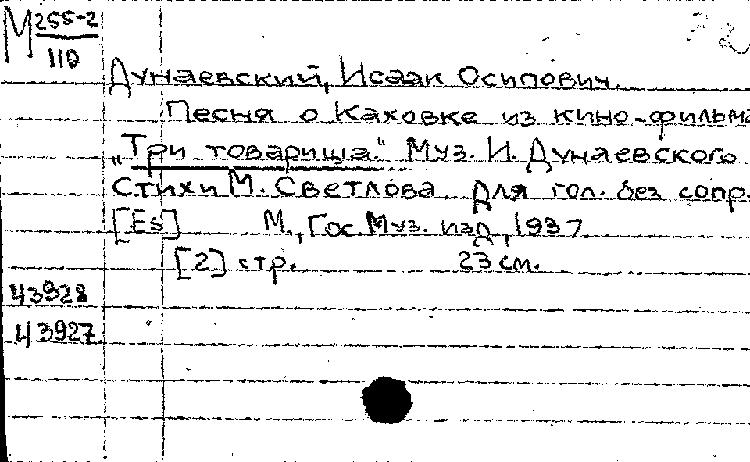 М 255-2
110
Дунаевский, Исаак Осипович.
Песня о Каховке из кино-фильма
„Три товарища." Муз. И. Дунаевского
Стихи М. Светлова. Для гол. без сопр.
[Es] М., Гос. Муз. изд., 1937.
[2] стр. 23 см.
43928
43927